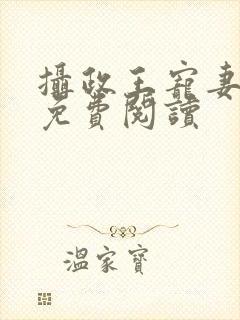 攝政王寵妻
免費閱讀
溫家寶